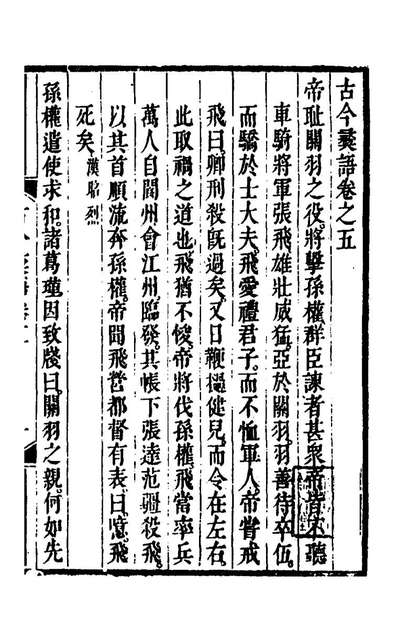 古今彞語卷之五
帝耻關羽之役將擊孫權群臣諫者甚衆帝皆不聽
車騎將軍張飛雄壯威猛亞於關羽羽善待卒伍
而驕於士大夫飛愛禮君子而不恤軍人帝嘗戒
飛曰卿刑殺旣過矣又日鞭檛健兒而令在左右
此取禍之道也飛猶不悛帝將伐孫權飛當率兵
萬人自閬州會江州臨發其帳下張達范疆殺飛
以其首順流奔孫權帝聞飛營都督有表曰噫飛
死矣 漢昭烈
孫權遣使求和諸葛瑾因致牋曰關羽之親何如先